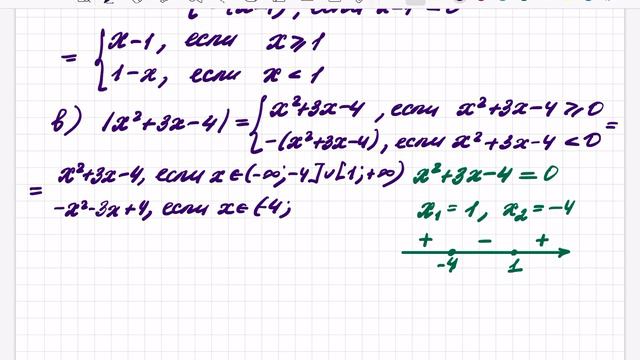 = { x-1, если x ⩾ 1
1-x, если x < 1
в) |x²+3x-4| = { x²+3x-4, если x²+3x-4 ⩾ 0
-(x²+3x-4), если x²+3x-4 < 0 =
= x²+3x-4, если x∈(-∞;-4]∪[1;+∞)
-x²-3x+4, если x∈(-4;
x²+3x-4=0
x₁=1, x₂=-4
+ - +
-4 1